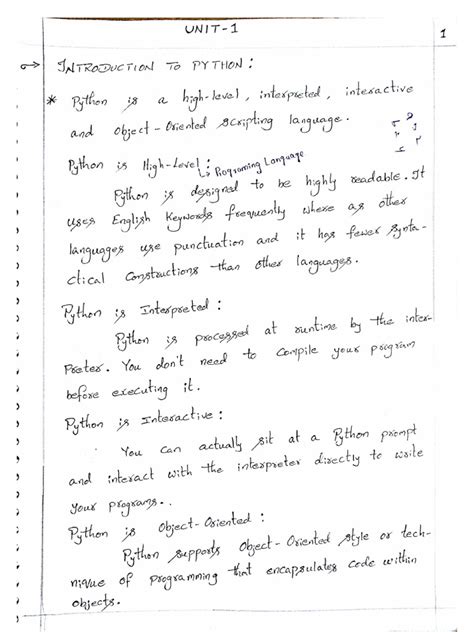 UNIT-1
1
INTRODUCTION TO PYTHON:
* Python is a high-level, interpreted, interactive
and Object-Oriented Scripting language.
Python is High-Level: Programing Language
Python is designed to be highly readable. It
uses English Keywords frequently where as other
languages use punctuation and it has fewer Synta-
ctical Constructions than other languages.
Python is Interpreted:
Python is processed at runtime by the inter-
preter. You don't need to compile your program
before executing it.
Python is Interactive:
You can actually sit at a Python prompt
and interact with the interpreter directly to write
your programs..
Python is Object-Oriented:
Python supports Object-Oriented Style or tech-
nique of programming that encapsulates code within
objects.